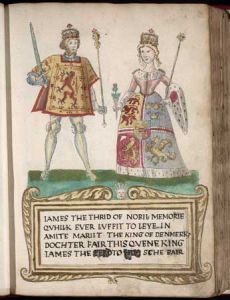 IAMES THE THRID OF NOBIL MEMORIE
QVHILK EVER IVFFIT TO LEVE IN
AMITE MARIIT THE KING OF DENMERK
DOCHTER FAIR THIS QVENE KING
IAMES THE TO SCHE BAIR